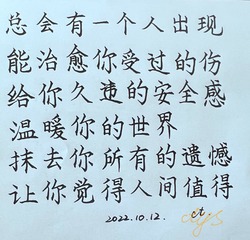 总会有一个人出现
能治愈你受过的伤
给你久违的安全感
温暖你的世界
抹去你所有的遗憾
让你觉得人间值得
2022.10.12.